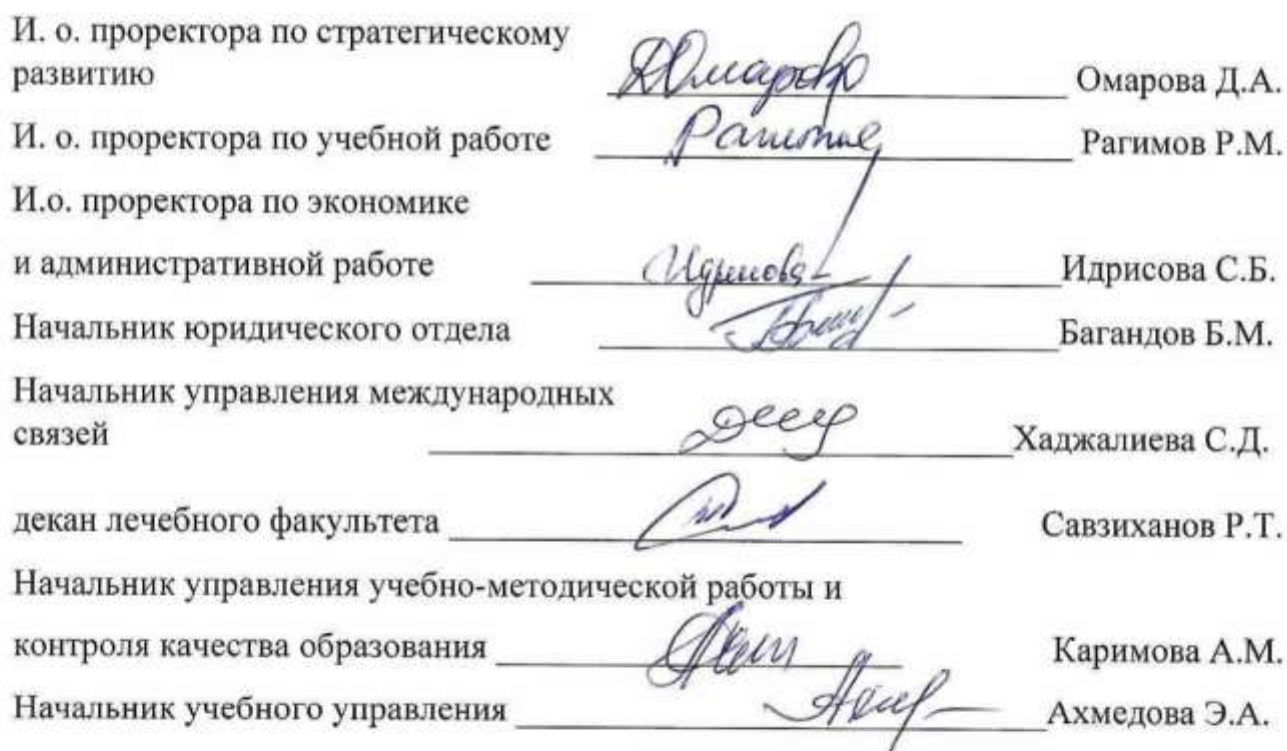 И. о. проректора по стратегическому
развитию Омарова Д.А.
И. о. проректора по учебной работе Рагимов Р.М.
И.о. проректора по экономике
и административной работе Идрисова С.Б.
Начальник юридического отдела Багандов Б.М.
Начальник управления международных
связей Хаджалиева С.Д.
декан лечебного факультета Савзиханов Р.Т.
Начальник управления учебно-методической работы и
контроля качества образования Каримова А.М.
Начальник учебного управления Ахмедова Э.А.